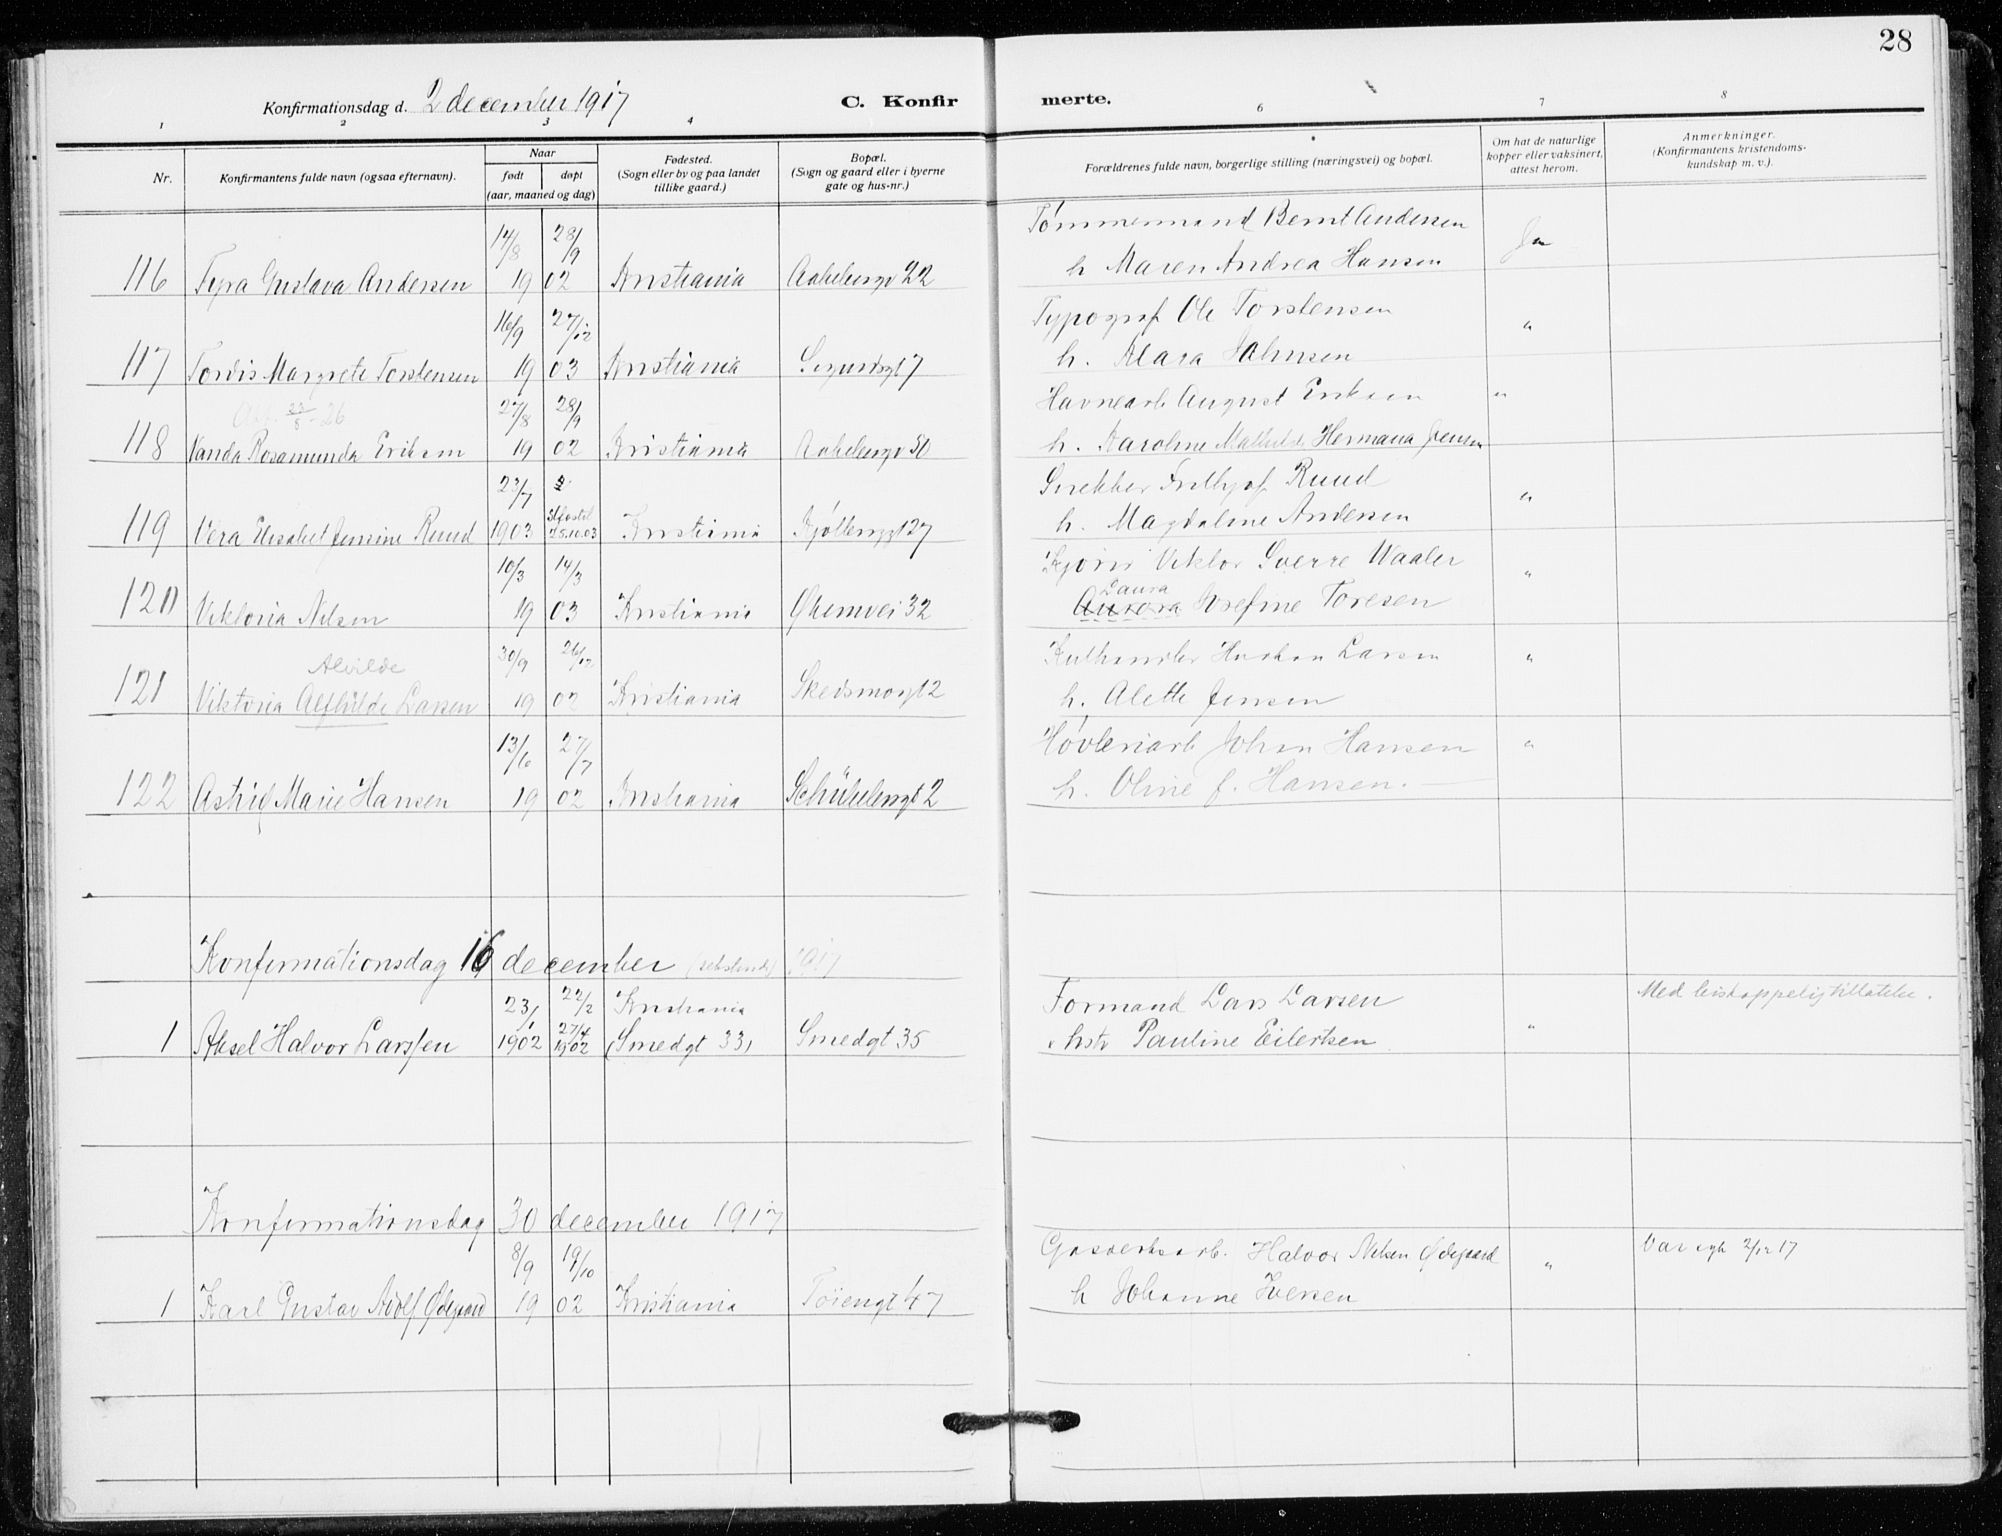 28
Konfirmationsdag d. 2 december 1917
C. Konfir
merte.
1 2 3 4 6 7 8
Nr.
Konfirmantens fulde navn (ogsaa efternavn).
Naar
født døpt
(aar, maaned og dag)
Fødested.
(Sogn eller by og paa landet
tillike gaard.)
Bopæl.
(Sogn og gaard eller i byerne
gate og hus-nr.)
Forældrenes fulde navn, borgerlige stilling (næringsvei) og bopæl.
Om hat de naturlige
kopper eller vaksinert,
attest herom.
Anmerkninger.
(Konfirmantens kristendoms-
kundskap m. v.).
14/8 28/9 Tømmermand Bernt Andersen Ja
116 Tyra Gustava Andersen 19 02 Kristiania Aakebergv 22 h. Maren Andrea Hansen
16/9 27/12 Typograf Ole Torstensen "
117 Tordis Margrete Torstensen 19 03 Kristiania Sigurdsgt 7 h. Klara Johnsen
22/8 - 26 27/8 28/9 Havnearb August Eriksen "
118 Vanda Rosamunda Eriksen 19 02 Kristiania Aakebergv 50 h. Karoline Mathilde Hermana Jensen
23/7 Snekker Fridtjof Ruud "
119 Vera Elisabet Jensine Ruud 1903 25.10.03 Kristiania Kjølberggt 27 h. Magdalene Andersen
10/3 14/3 Kjører Viktor Sverre Waaler "
Laura
120 Viktoria Nilsen 19 03 Kristiania Økernvei 32 Aurora Josefine Toresen
30/9 26/12 Kulhandler Haakon Larsen "
Alvilde
121 Viktoria Alfhilde Larsen 19 02 Kristiania Skedsmogt 2 h. Alette Jensen
13/6 27/7 Høvleriarb Johan Hansen "
122 Astrid Marie Hansen 19 02 Kristiania Schübelersgt 2 h. Oline f. Hansen.
Konfirmationsdag 16 december 1917
23/1 22/2 Kristiania Formand Lars Larsen Med biskoppelig tillatelse.
1 Aksel Halvor Larssen 1902 27/4 1902 (Smedgt 33) Smedgt 35 hstr Pauline Eilertsen "
Konfirmationsdag 30 december 1917
8/9 19/10 Gasverksarb. Halvor Nilsen Ødegaard " Var syk 2/12 17
1 Karl Gustav Adolf Ødegaard 19 02 Kristiania Tøiengt 47 h Johanne Iversen